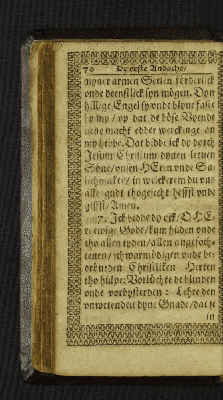 70 De erste Andacht/
myner armen Seelen förderlick
unde deenstlick syn mögen. Dyn
hillige Engel sy unde blyve stäts
by my / up dat de böse Vyendt
nene macht edder werckinge an
my hebbe. Dat bidde ick dy dorch
Jesum Christum dynen leeven
Söne / unsen HEren unde Sa-
lichmaker / in welckerem du uns
alle gudt thogesecht heffst unde
giffst / Amen.
7. Ick bidde dy ock / O HE-
re ewige Godt / kum hüden unde
tho allen tyden / allen angefoch-
tenen / schwarmödigen unde be-
dröveden Christliken Herten
tho hülpe: Vorlüchte de blinden
unde vorbysterden: Lehre den
unwetenden dyne Gnade / dat se
in